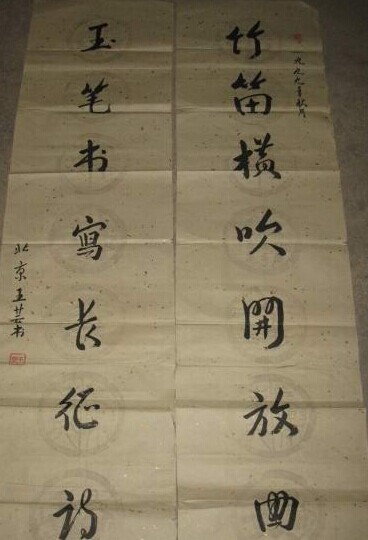 竹笛橫吹開放曲
一九九九年秋月
玉笔书寫长征詩
北京王芸书